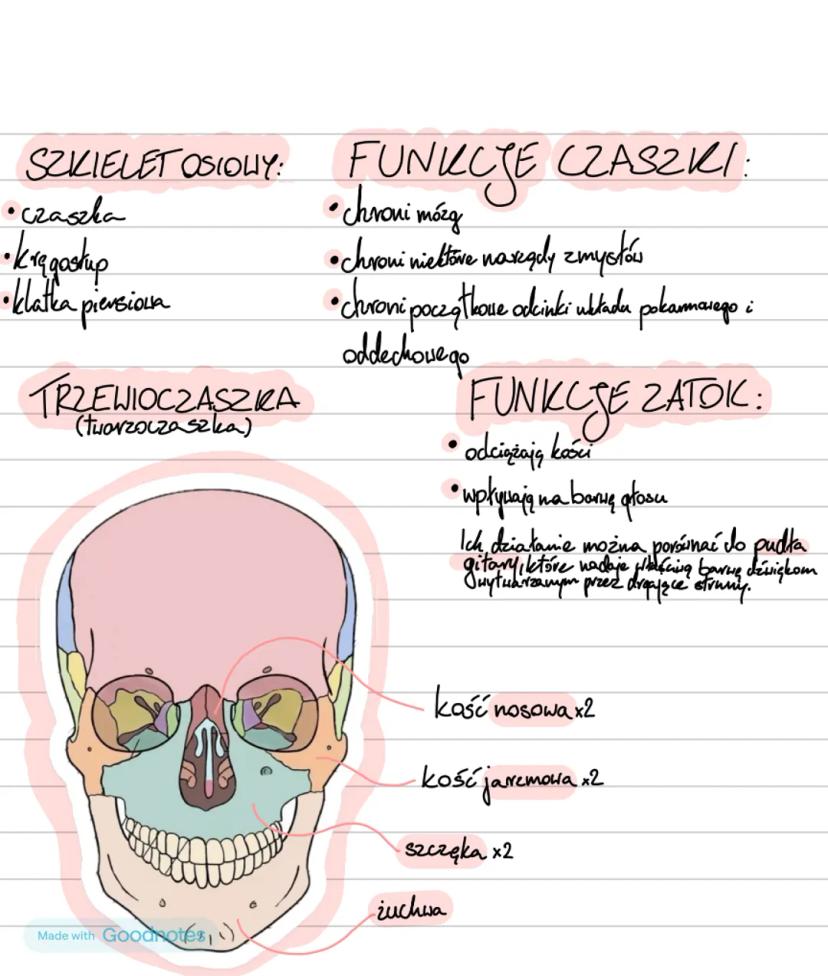 SZKIELET OSIOWY:
• czaszka
• kręgosłup
• klatka piersiowa
FUNKCJE CZASZKI:
• chroni mózg
• chroni niektóre narządy zmysłów
• chroni początkowe odcinki układu pokarmowego i
oddechowego
TRZEWIOCZASZKA
(twarzoczaszka)
FUNKCJE ZATOK:
• odciążają kości
• wpływają na barwę głosu
Ich działanie można porównać do pudła
gitary, które nadaje właściwą barwę dźwiękom
wytwarzanym przez drgające struny.
kość nosowa x2
kość jarzmowa x2
szczęka x2
żuchwa
Made with Goodnotes